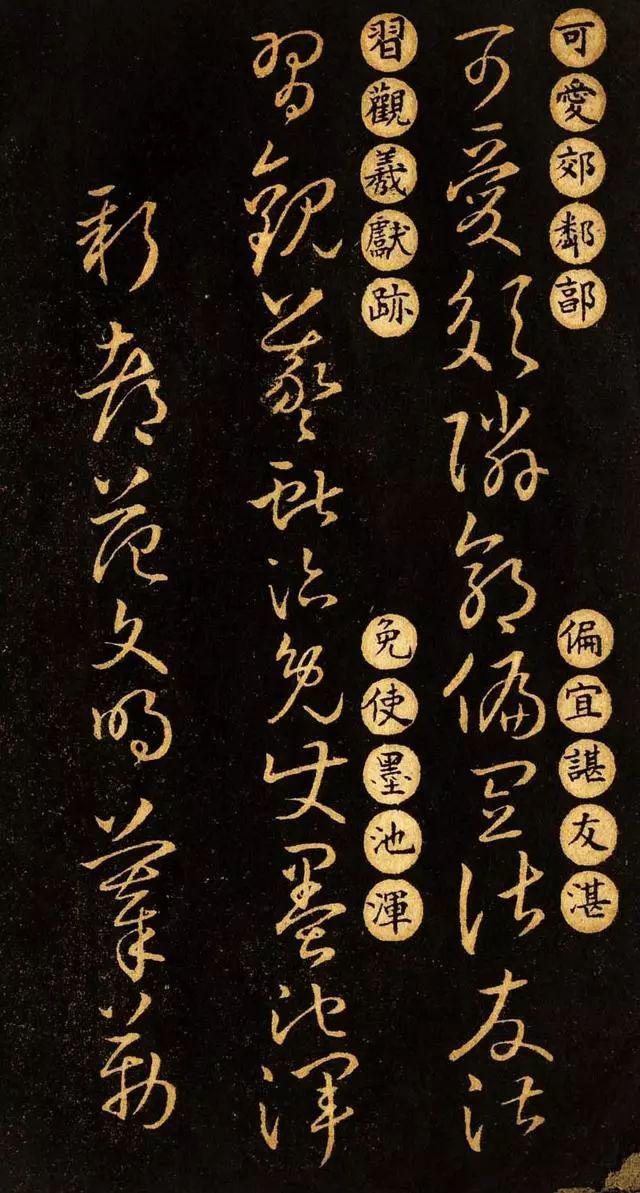 可愛郊鄰郭
偏宜諶友湛
可愛郊鄰郭偏宜諶友湛
習觀羲獻跡
免使墨池渾
習觀羲獻跡免使墨池渾
新都范文明摹勒